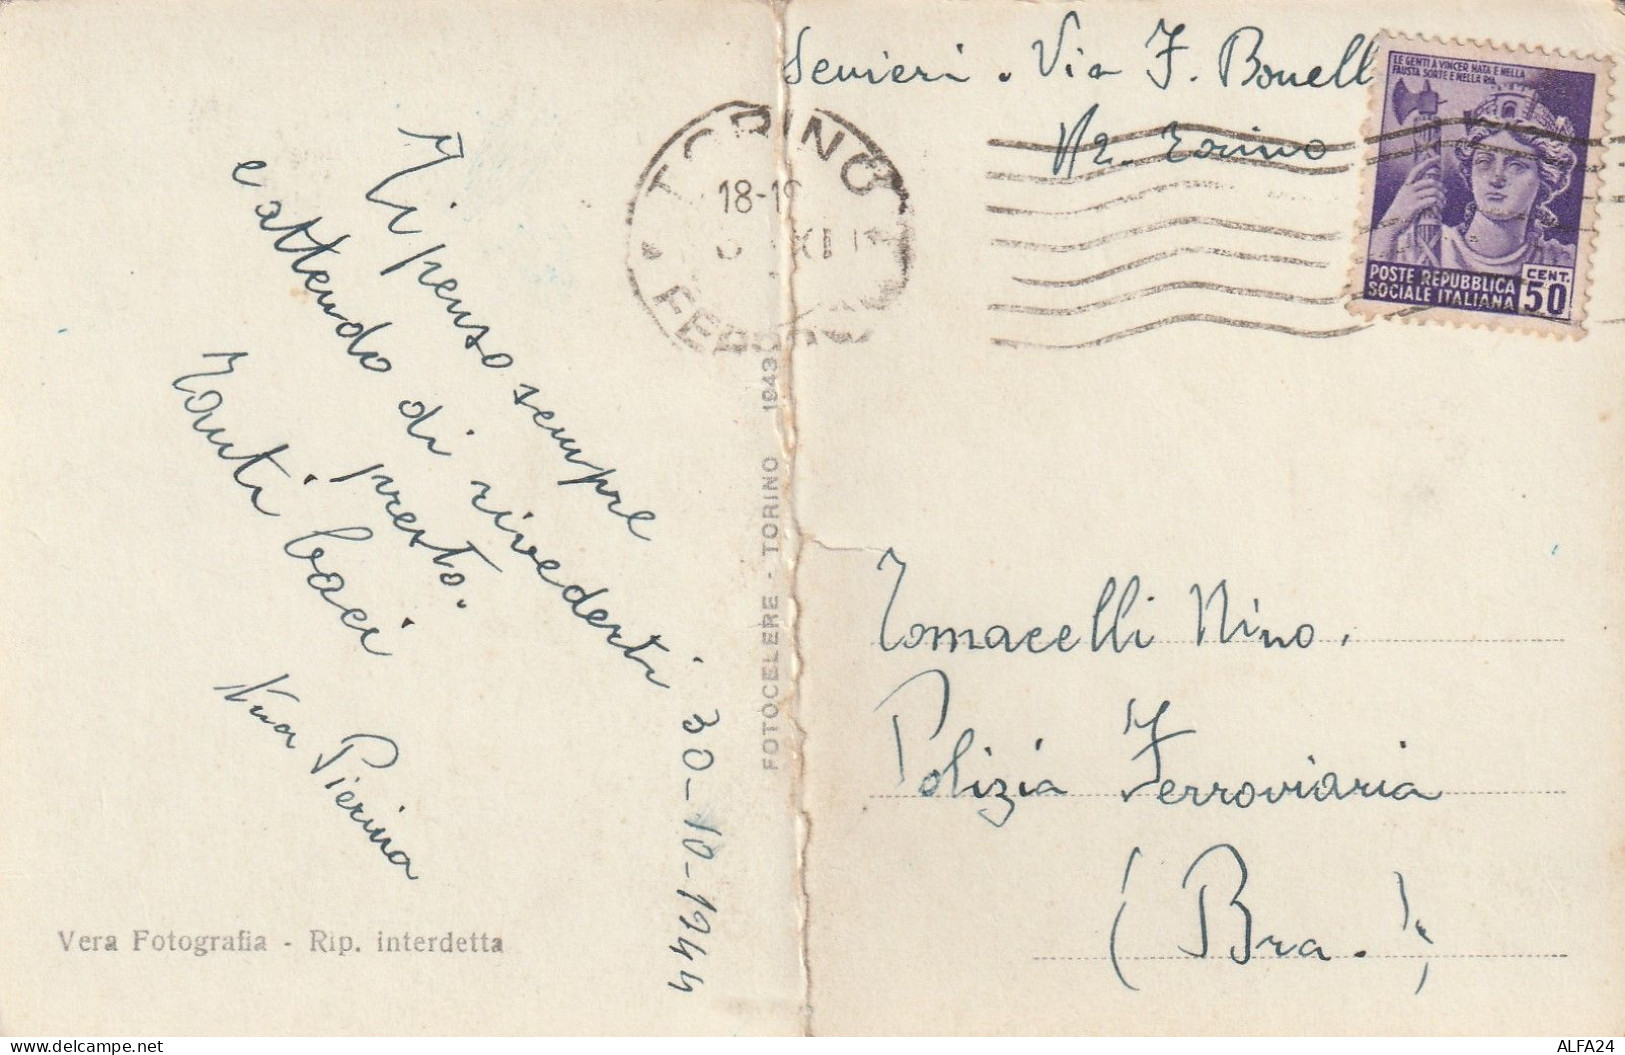 Ti penso sempre
e attendo di rivederti
presto.
Tanti baci
Pierina
30-10-1944
Vera Fotografia - Rip. interdetta
FOTOCELERE - TORINO 1943
TORINO
18-19
XI
Via F. Bonell
Torino
LE GENTI A VINCER NATA E NELLA
FAUSTA SORTE E NELLA RIA
POSTE REPUBBLICA
SOCIALE ITALIANA
CENT.
50
Tomacelli Nino.
Polizia Ferroviaria
(Bra.)
ALFA24